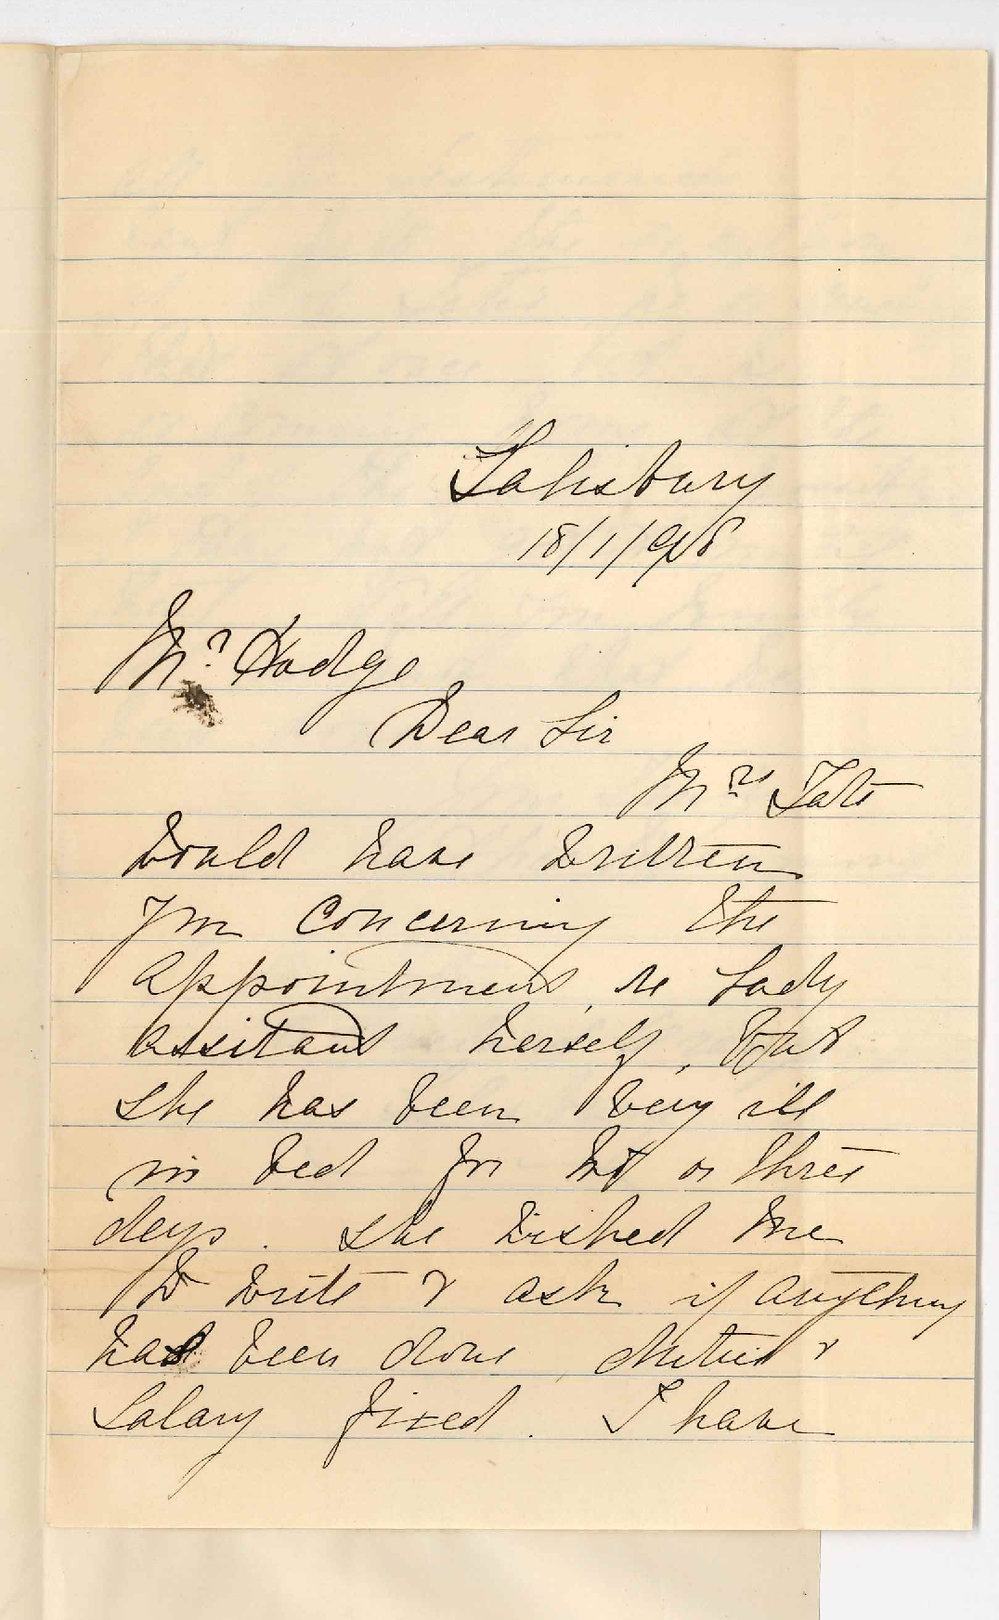 Salisbury
18/1/98
Mr. Hodge
Dear Sir
Mrs Tate
would have written
you concerning the
appointment, re Lady
assitant herself, but
she has been very ill
in bed for two or three
days. She wished me
to write & ask if anything
has been done, duties &
salary fixed. I have